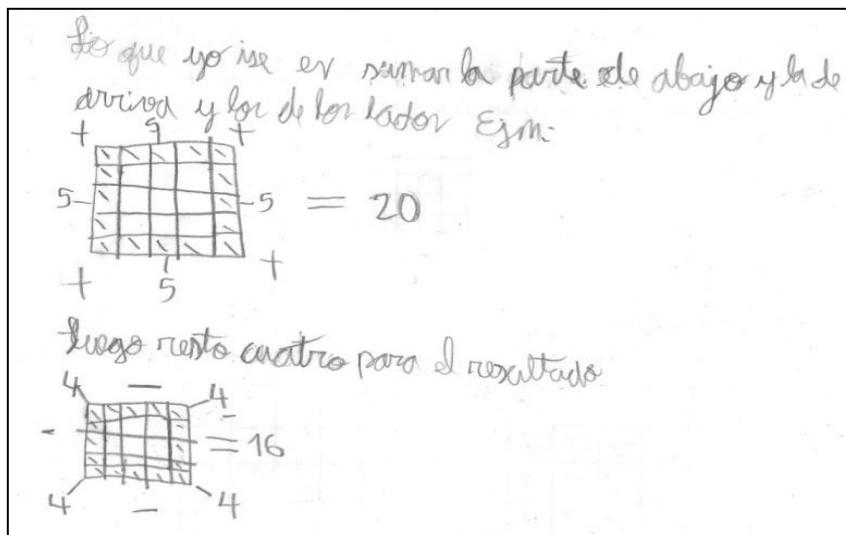 Lo que yo ise es sumar la parte de abajo y la de
arriva y los de los lados Ejm:
+ 5 +
5 5 = 20
+ 5 +
luego resto cuatro para el resultado
4 - 4
- - = 16
4 - 4